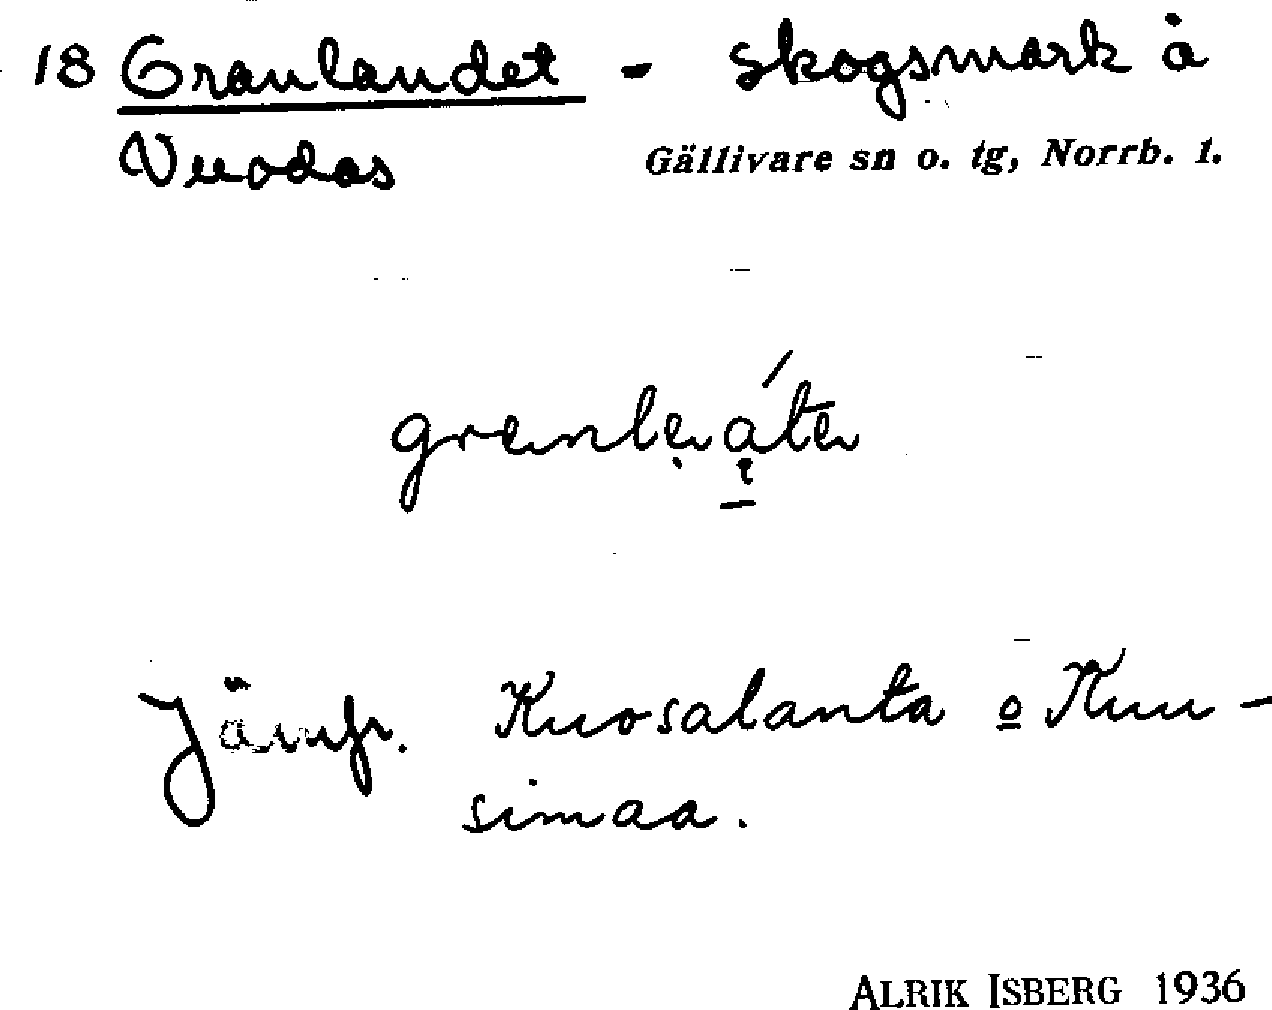 18 Granlandet - skogsmark å
Vuodas
Gällivare sn o. tg, Norrb. l.
Jämfr. Kuosalanta o Kuu-
simaa.
ALRIK ISBERG 1936